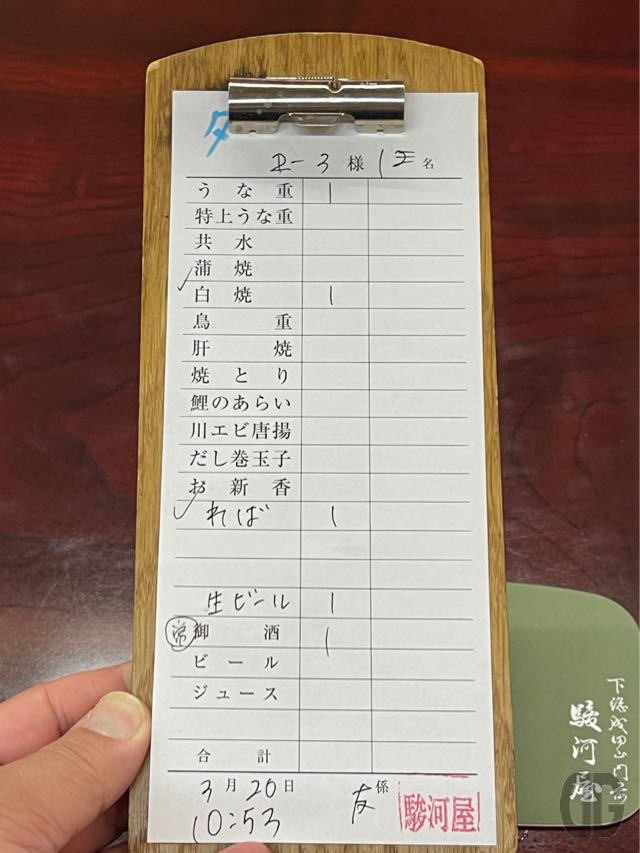 タ
2-3 様 1 名
うな重 1
特上うな重
共水
蒲焼
白焼 1
鳥重
肝焼
焼とり
鯉のあらい
川エビ唐揚
だし巻玉子
お新香
ればー 1
生ビール 1
常 御酒 1
ビール
ジュース
合計
3月20日
10:53
友 係
駿河屋
下総成田山門前
駿河屋